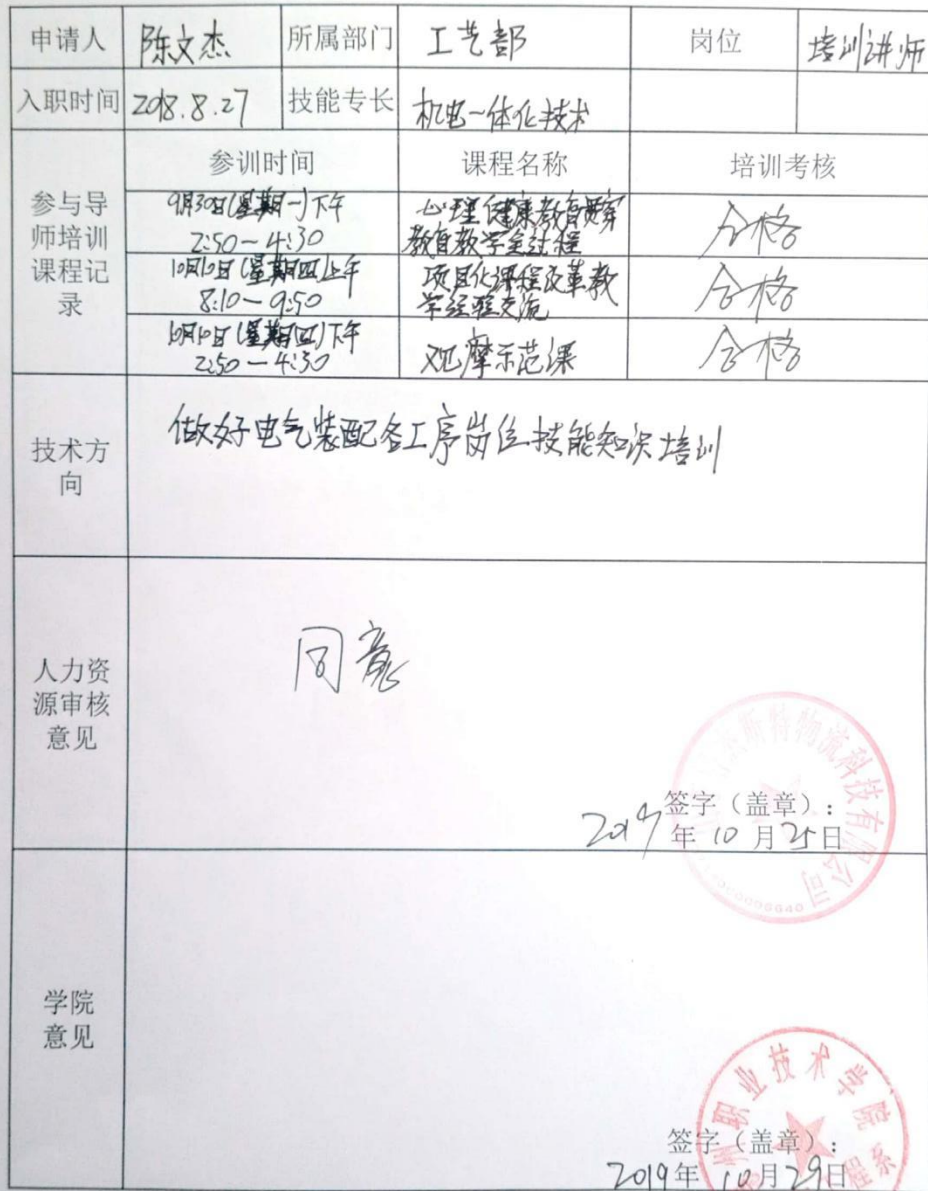 申请人 陈文杰 所属部门 工艺部 岗位 培训讲师
入职时间 2018.8.27 技能专长 机电一体化技术
参与导师培训课程记录
参训时间 课程名称 培训考核
9月30日(星期一)下午
2:50—4:30
心理健康教育贯穿
教育教学全过程
合格
10月10日(星期四)上午
8:10—9:50
项目化课程改革教
学经验交流
合格
10月10日(星期四)下午
2:50—4:30
观摩示范课
合格
技术方
向
做好电气装配各工序岗位技能知识培训
人力资
源审核
意见
同意
斯特物流科技有限公司
签字(盖章):
2019年10月25日
学院
意见
州职业技术学院
程系
签字(盖章):
2019年10月29日